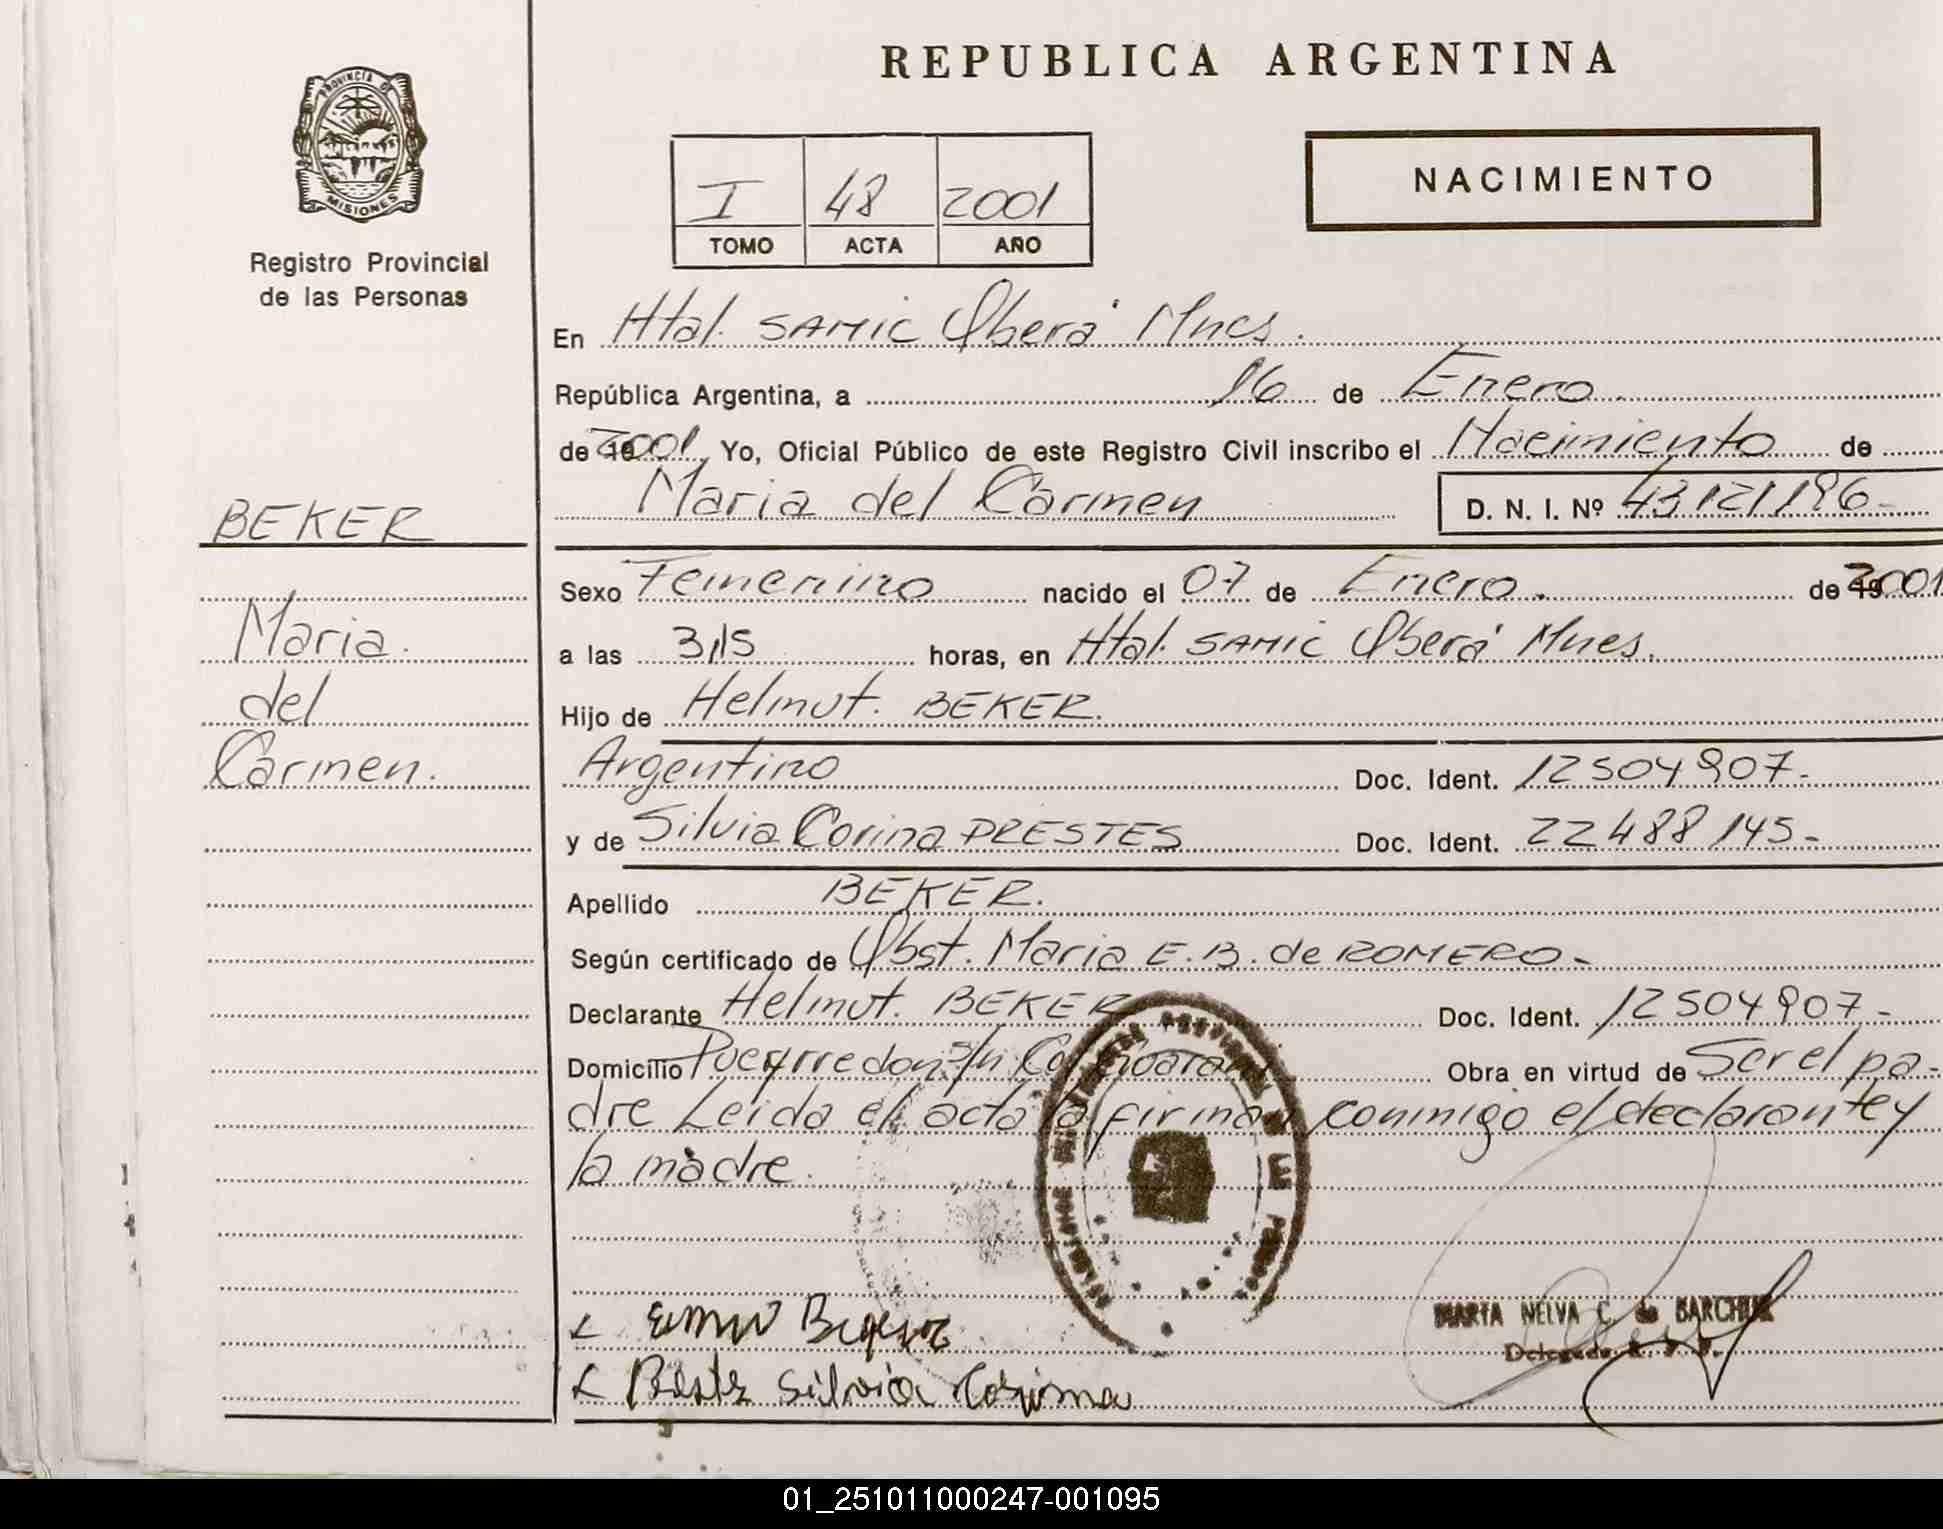 REPUBLICA ARGENTINA
PROVINCIA DE
MISIONES
Registro Provincial
de las Personas
I 48 2001
TOMO ACTA AÑO
NACIMIENTO
En Htal. SAMIC Oberá Mnes.
República Argentina, a 16 de Enero
de 19 2001 Yo, Oficial Público de este Registro Civil inscribo el Nacimiento de
Maria del Carmen D. N. I. Nº 43121196-
BEKER
Maria.
del
Carmen.
Sexo Femenino nacido el 07 de Enero. de 19 2001
a las 3,15 horas, en Htal. SAMIC Oberá Mnes.
Hijo de Helmut. BEKER.
Argentino Doc. Ident. 12504907-
y de Silvia Corina PRESTES Doc. Ident. 22488145-
Apellido BEKER.
Según certificado de Obst. Maria E. B. de ROMERO-
Declarante Helmut. BEKER Doc. Ident. 12504907-
Domicilio Pueyrredon s/n Obra en virtud de Ser el pa-
dre Leida el acta la firman conmigo el declarante y
la madre.
MARTA NELVA C. de
Silvia
01_251011000247-001095